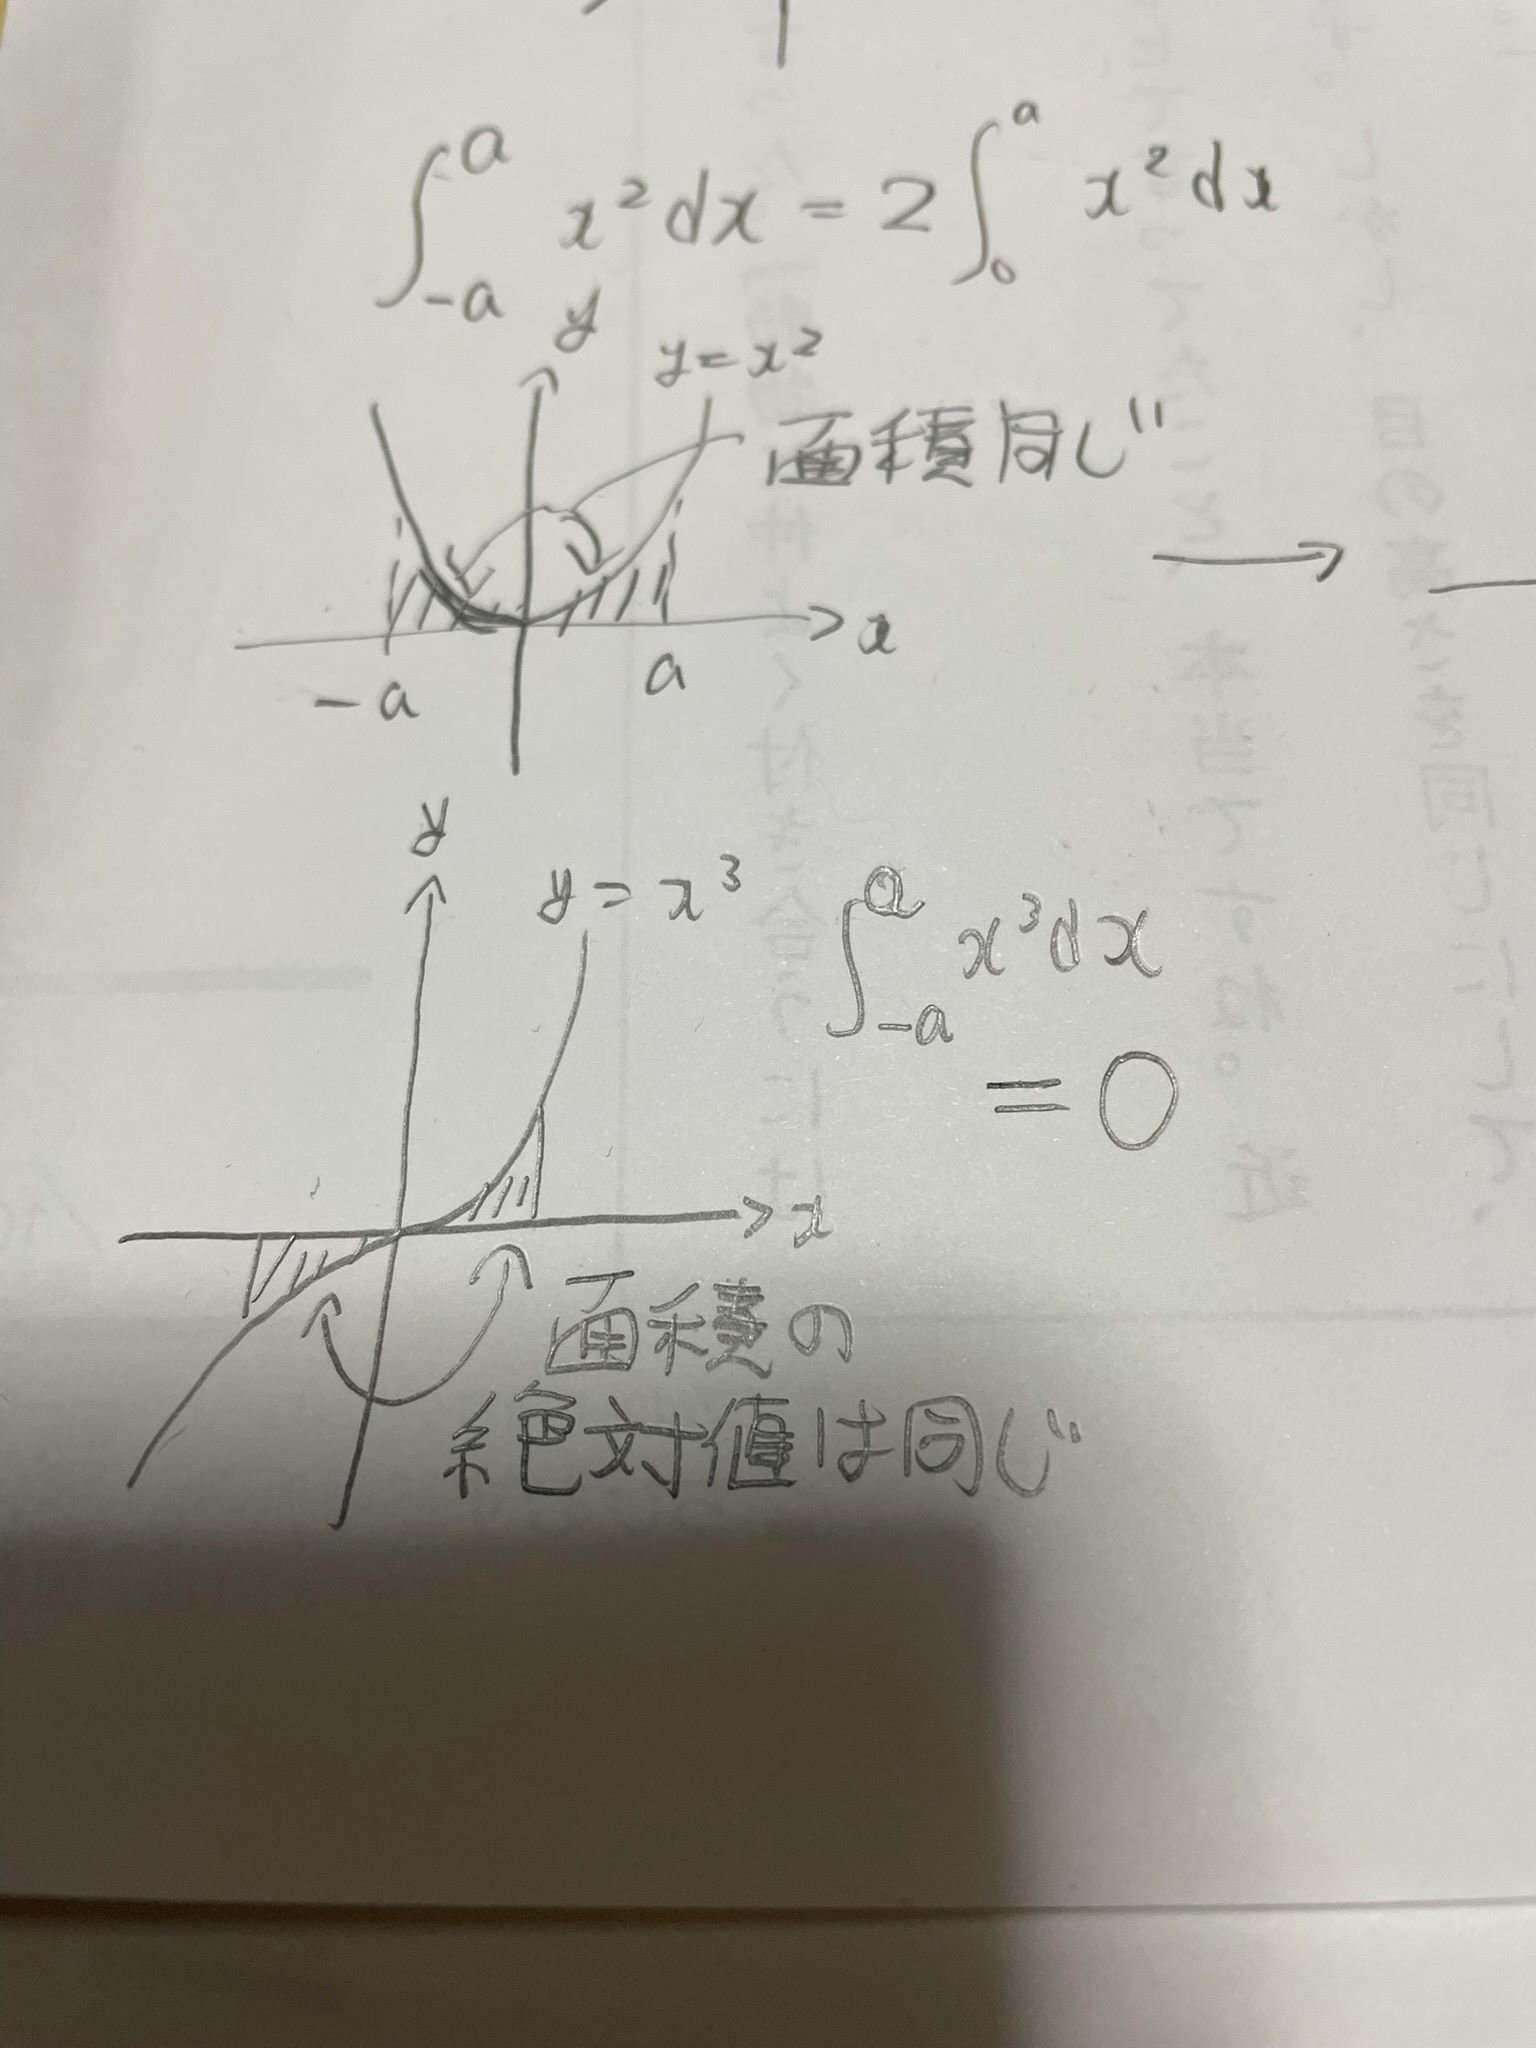 ∫_{-a}^{a} x² dx = 2∫_{0}^{a} x² dx
y
y = x²
面積同じ
x
-a
a
y
y = x³
∫_{-a}^{a} x³dx
= 0
x
面積の
絶対値は同じ